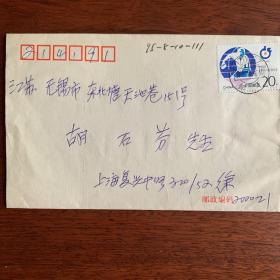 214191
95-8-10-111
20
江苏 无锡市 东北塘天池巷15号
胡石芳先生
上海复兴中路320/52 徐
邮政编码 200021